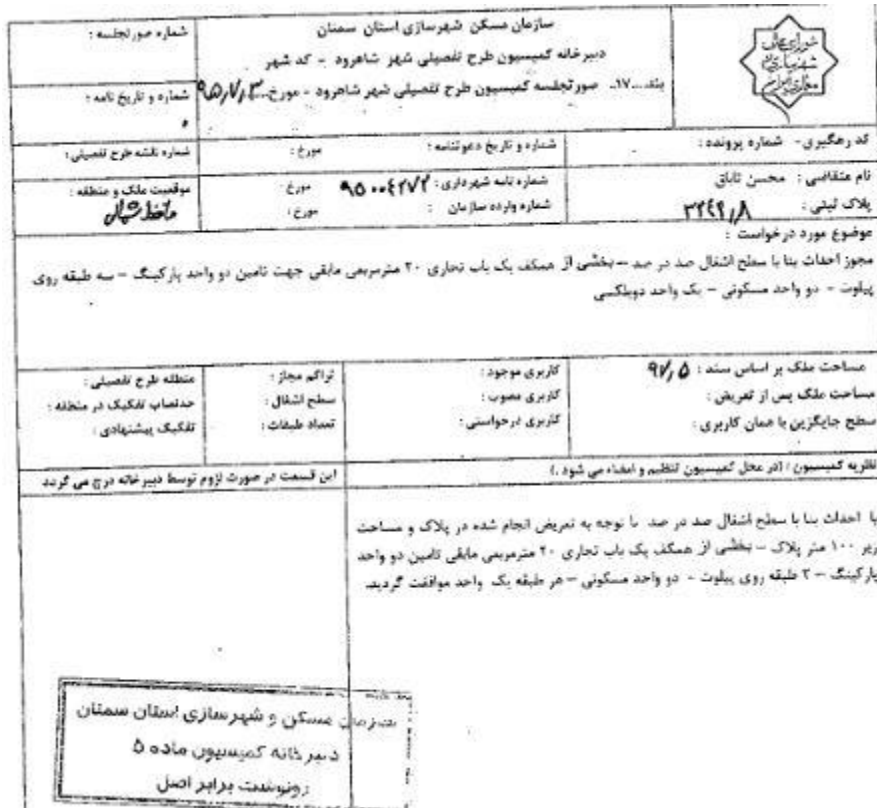 شورای عالی
شهرسازی و
معماری ایران
سازمان مسکن شهرسازی استان سمنان
دبیرخانه کمیسیون طرح تفصیلی شهر شاهرود - کد شهر
بند...۱۷.. صورتجلسه کمیسیون طرح تفصیلی شهر شاهرود - مورخ...۹۵,۷,۳
شماره صورتجلسه :
شماره و تاریخ نامه :
کد رهگیری- شماره پرونده :
شماره و تاریخ دعوتنامه : مورخ :
شماره نقشه طرح تفصیلی :
نام متقاضی : محسن تاباق
پلاک ثبتی : ۳۲۴۹,۸
شماره نامه شهرداری : ۹۵۰۰۴۲۷۲ مورخ
شماره وارده سازمان : مورخ :
موقعیت ملک و منطقه :
موضوع مورد درخواست :
مجوز احداث بنا با سطح اشغال صد در صد – بخشی از همکف یک باب تجاری ۲۰ مترمربعی مابقی جهت تامین دو واحد پارکینگ – سه طبقه روی
پیلوت - دو واحد مسکونی – یک واحد دوبلکسی
مساحت ملک بر اساس سند : ۹۷,۵
مساحت ملک پس از تعریض :
سطح جایگزین با همان کاربری :
کاربری موجود :
کاربری مصوب :
کاربری درخواستی :
تراکم مجاز :
سطح اشغال :
تعداد طبقات :
منطقه طرح تفصیلی :
حدنصاب تفکیک در منطقه :
تفکیک پیشنهادی :
نظریه کمیسیون : (در محل کمیسیون تنظیم و امضاء می شود .)
این قسمت در صورت لزوم توسط دبیر خانه درج می گردد
با احداث بنا با سطح اشغال صد در صد با توجه به تعریض انجام شده در پلاک و مساحت
زیر ۱۰۰ متر پلاک – بخشی از همکف یک باب تجاری ۲۰ مترمربعی مابقی تامین دو واحد
پارکینگ – ۳ طبقه روی پیلوت - دو واحد مسکونی – هر طبقه یک واحد موافقت گردید.
سازمان مسکن و شهرسازی استان سمنان
دبیرخانه کمیسیون ماده ۵
رونوشت برابر اصل